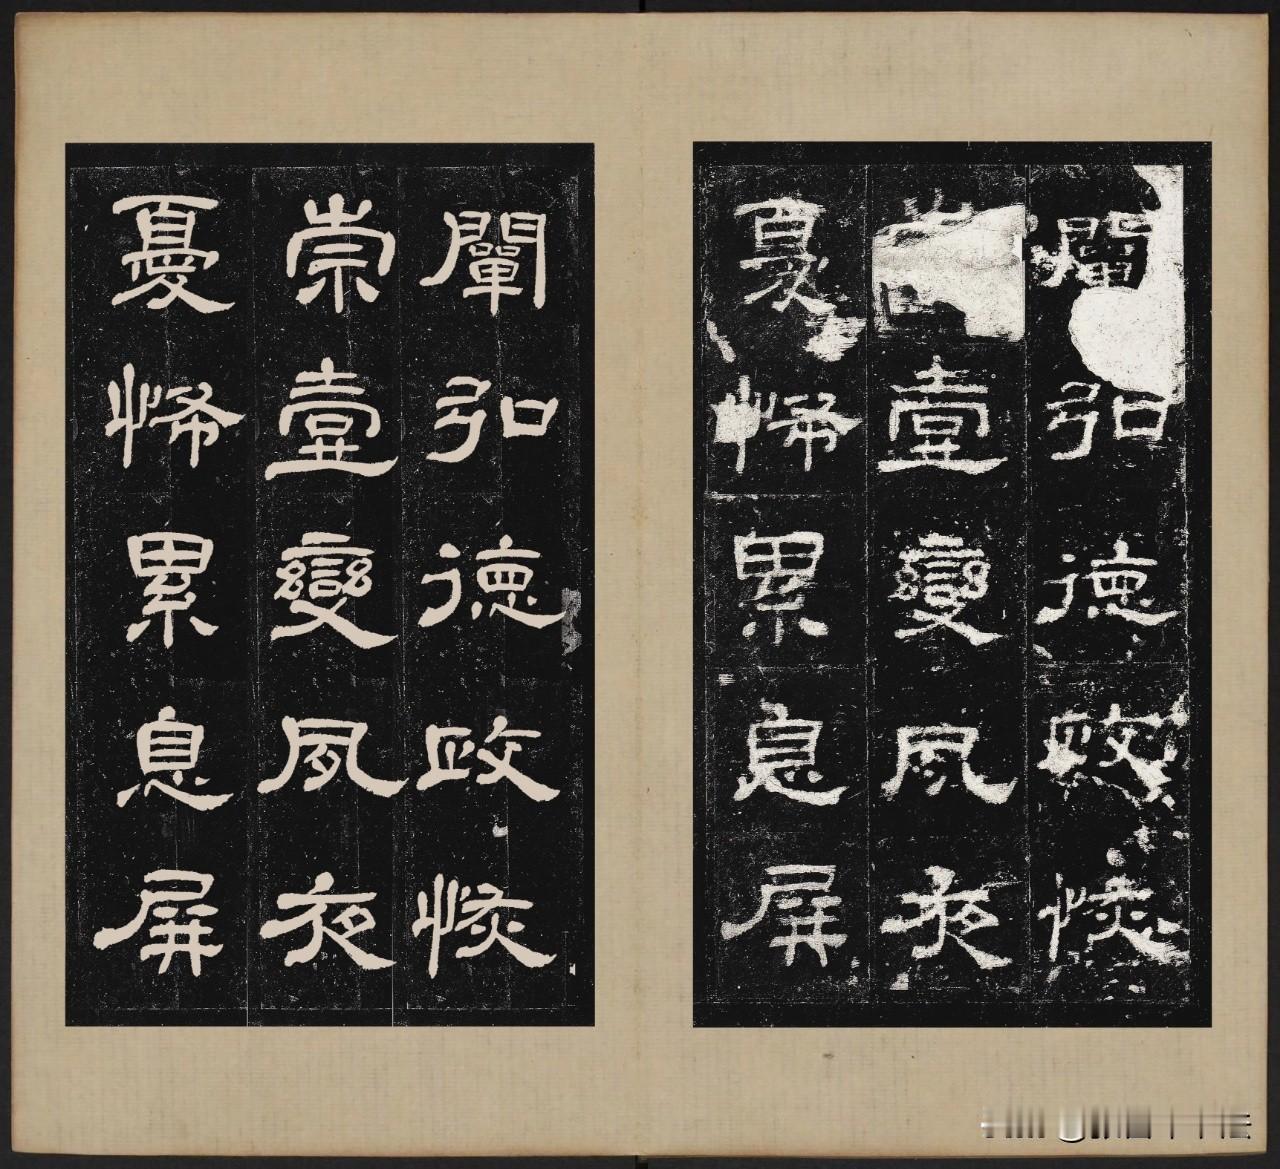 闡弘德政恢
崇壹變夙夜
憂怖累息屏
闡弘德政恢
崇壹變夙夜
憂怖累息屏